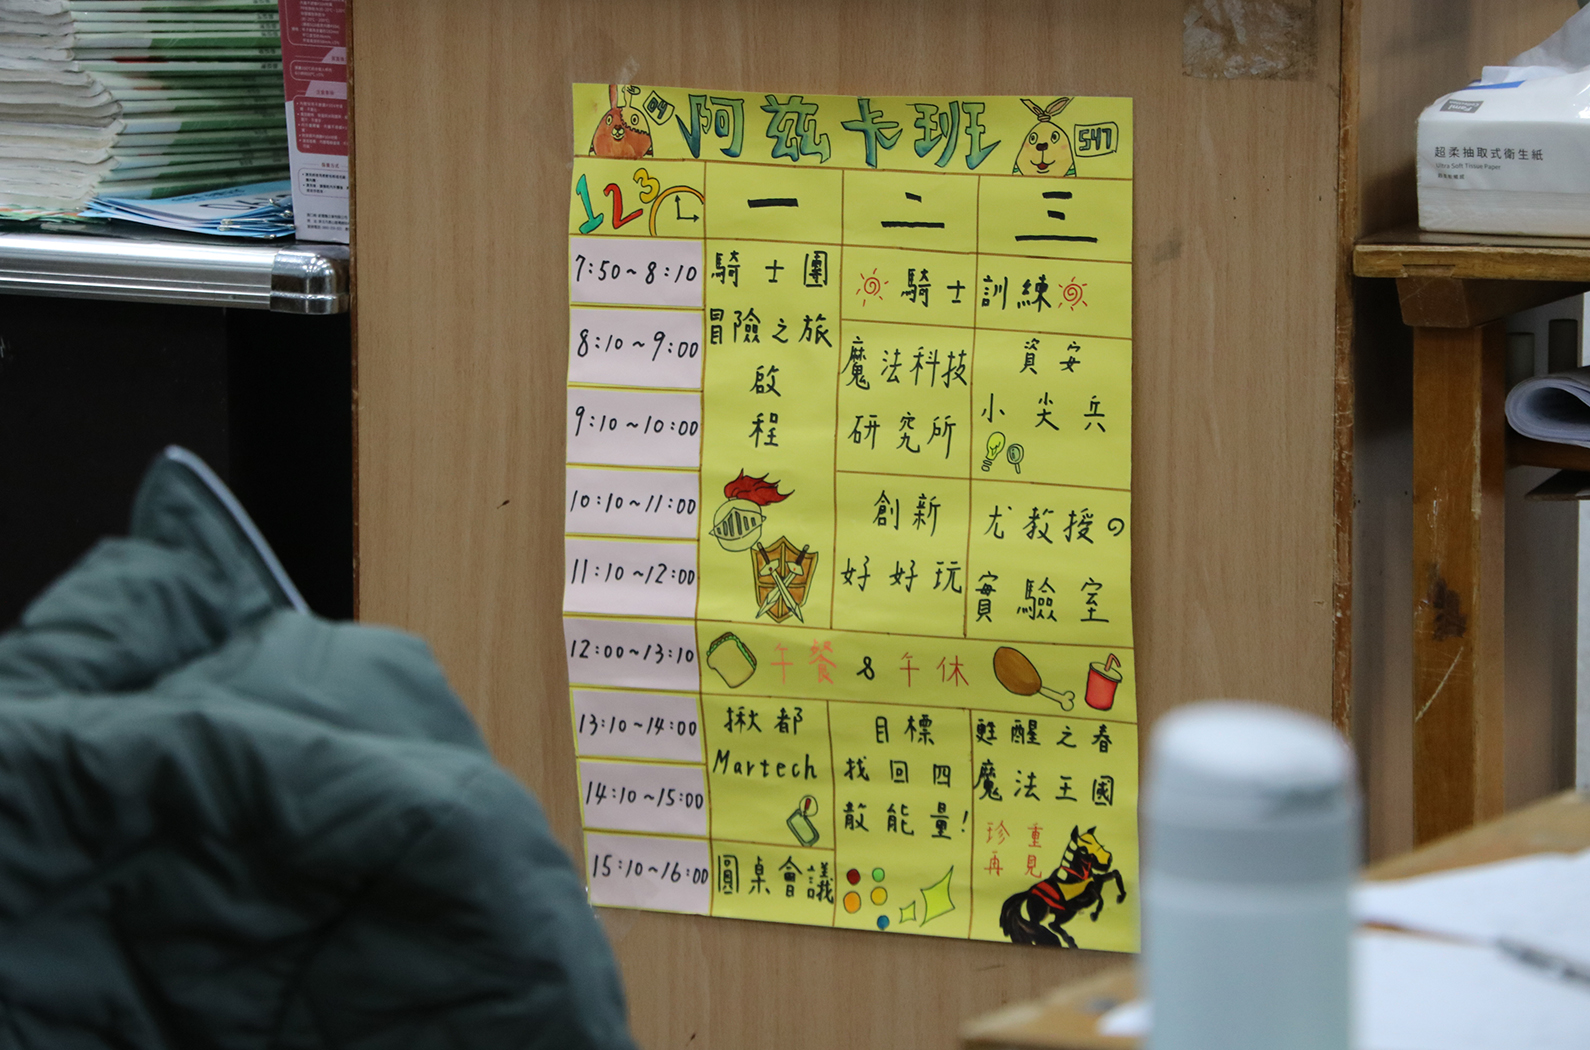 04
阿茲卡班
547
123
一
二
三
7:50~8:10
8:10~9:00
9:10~10:00
10:10~11:00
11:10~12:00
12:00~13:10
13:10~14:00
14:10~15:00
15:10~16:00
騎士團
冒險之旅
啟
程
騎士訓練
魔法科技
研究所
資安
小尖兵
創新
好好玩
尤教授の
實驗室
午餐&午休
揪都
Martech
圓桌會議
目標
找回四
散能量!
甦醒之春
魔法王國
珍重
再見
超柔抽取式衛生紙
Ultra Soft Tissue Paper